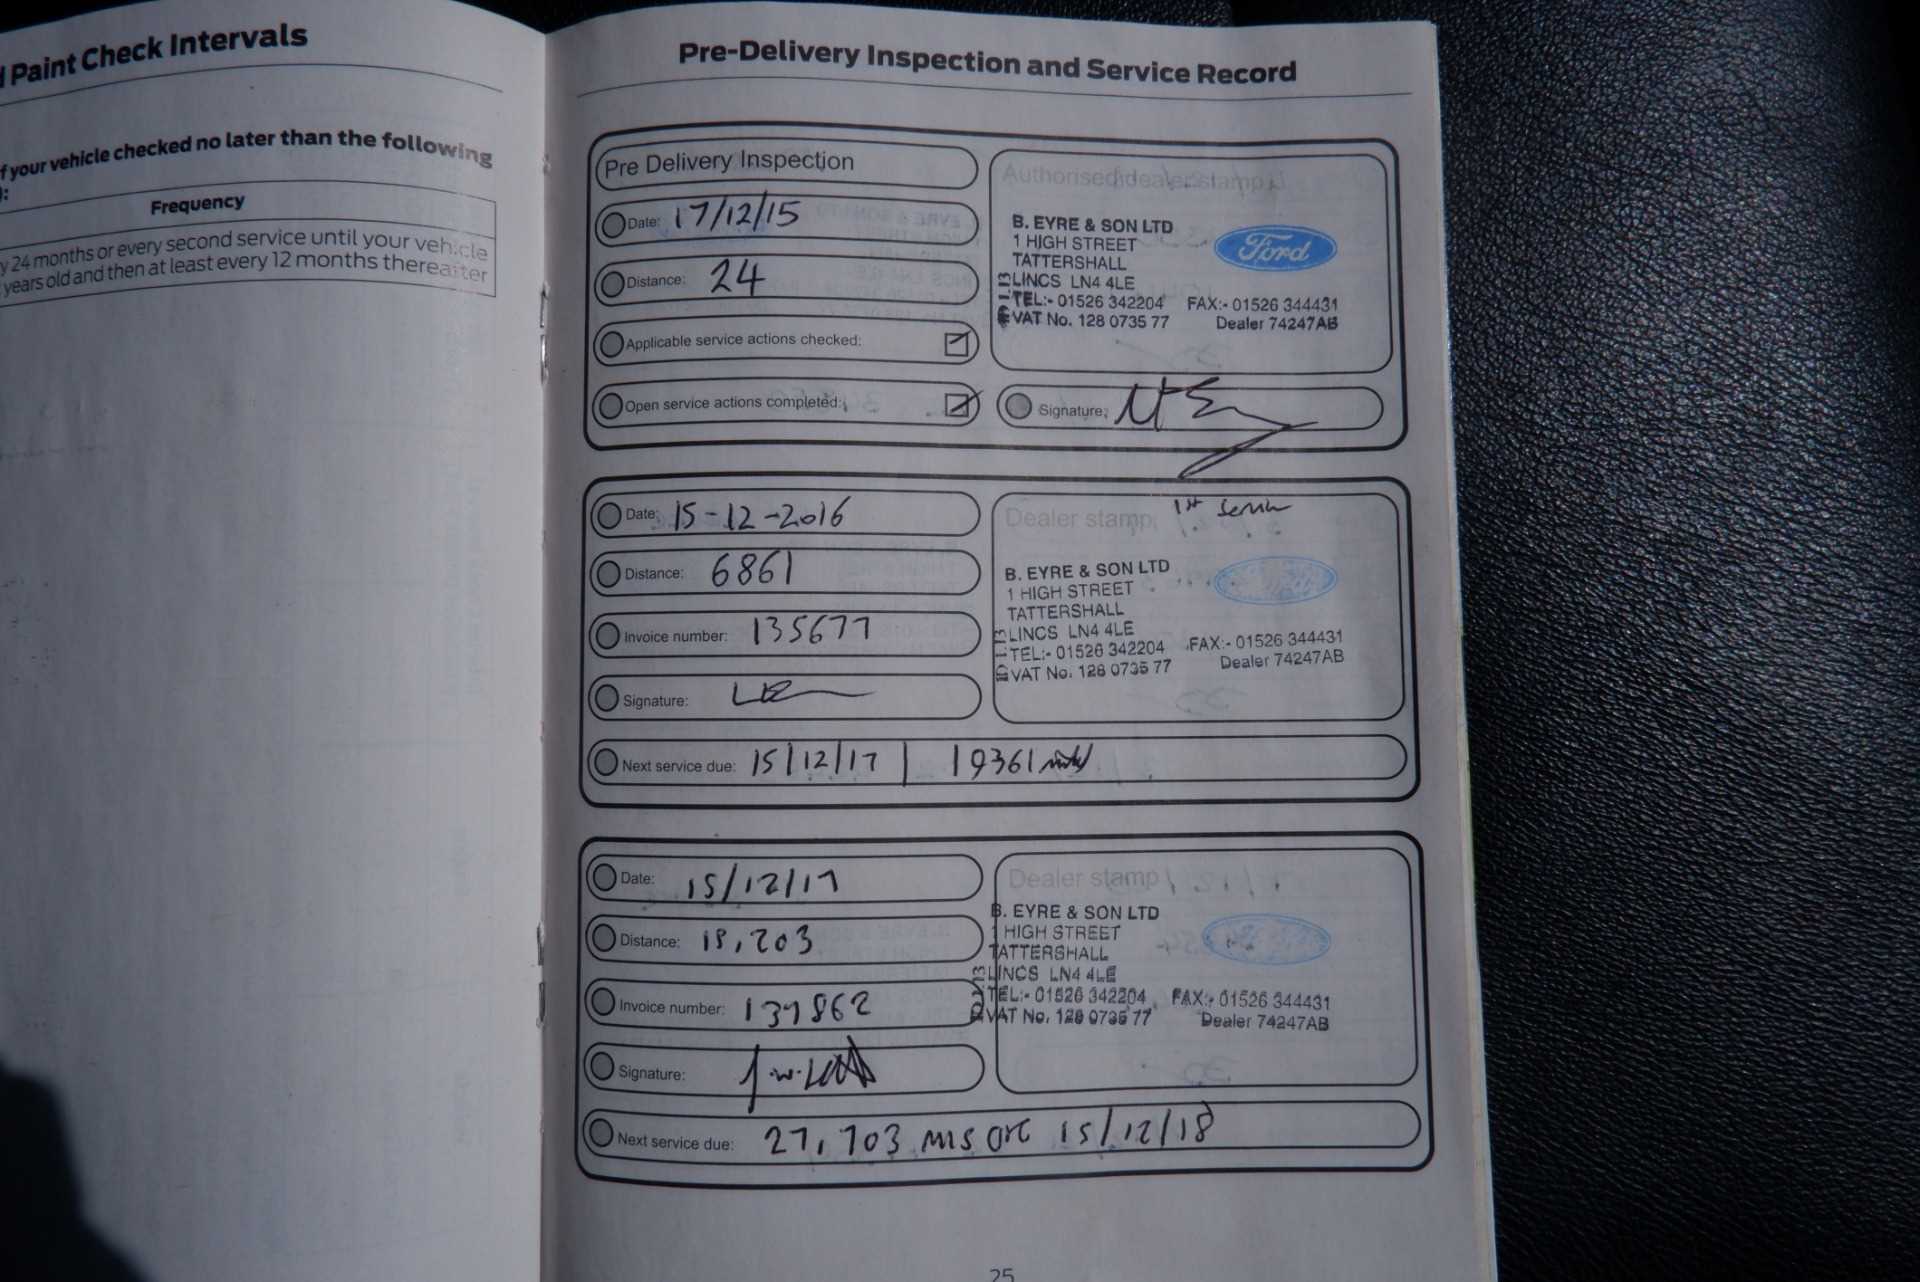 Paint Check Intervals
f your vehicle checked no later than the following
Frequency
y 24 months or every second service until your vehicle
years old and then at least every 12 months thereafter
Pre-Delivery Inspection and Service Record
Pre Delivery Inspection
Date: 17/12/15
Distance: 24
Applicable service actions checked:
Open service actions completed:
Authorised dealer stamp
B. EYRE & SON LTD
1 HIGH STREET
TATTERSHALL
LINCS LN4 4LE
TEL:- 01526 342204 FAX:- 01526 344431
VAT No. 128 0735 77 Dealer 74247AB
Ford
Signature:
Date: 15-12-2016
Distance: 6861
Invoice number: 135677
Signature:
Dealer stamp
1st Service
B. EYRE & SON LTD
1 HIGH STREET
TATTERSHALL
LINCS LN4 4LE
TEL:- 01526 342204 FAX:- 01526 344431
VAT No. 128 0735 77 Dealer 74247AB
Next service due: 15/12/17 | 19361 miles
Date: 15/12/17
Distance: 15,203
Invoice number: 137862
Signature:
Dealer stamp
B. EYRE & SON LTD
1 HIGH STREET
TATTERSHALL
LINCS LN4 4LE
TEL:- 01526 342204 FAX:- 01526 344431
VAT No. 128 0735 77 Dealer 74247AB
Next service due: 27,703 MLS ORE 15/12/18
25